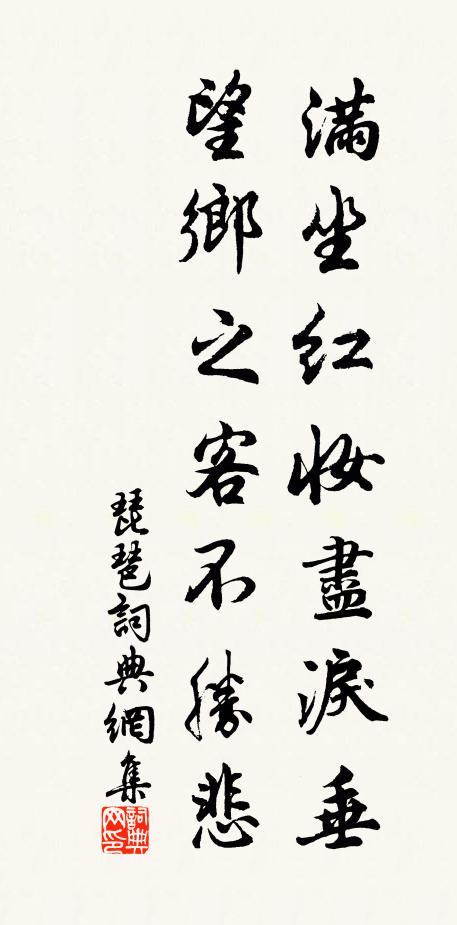 滿坐紅妝盡淚垂
望鄉之客不勝悲
琵琶詞典網集
詞典
网印